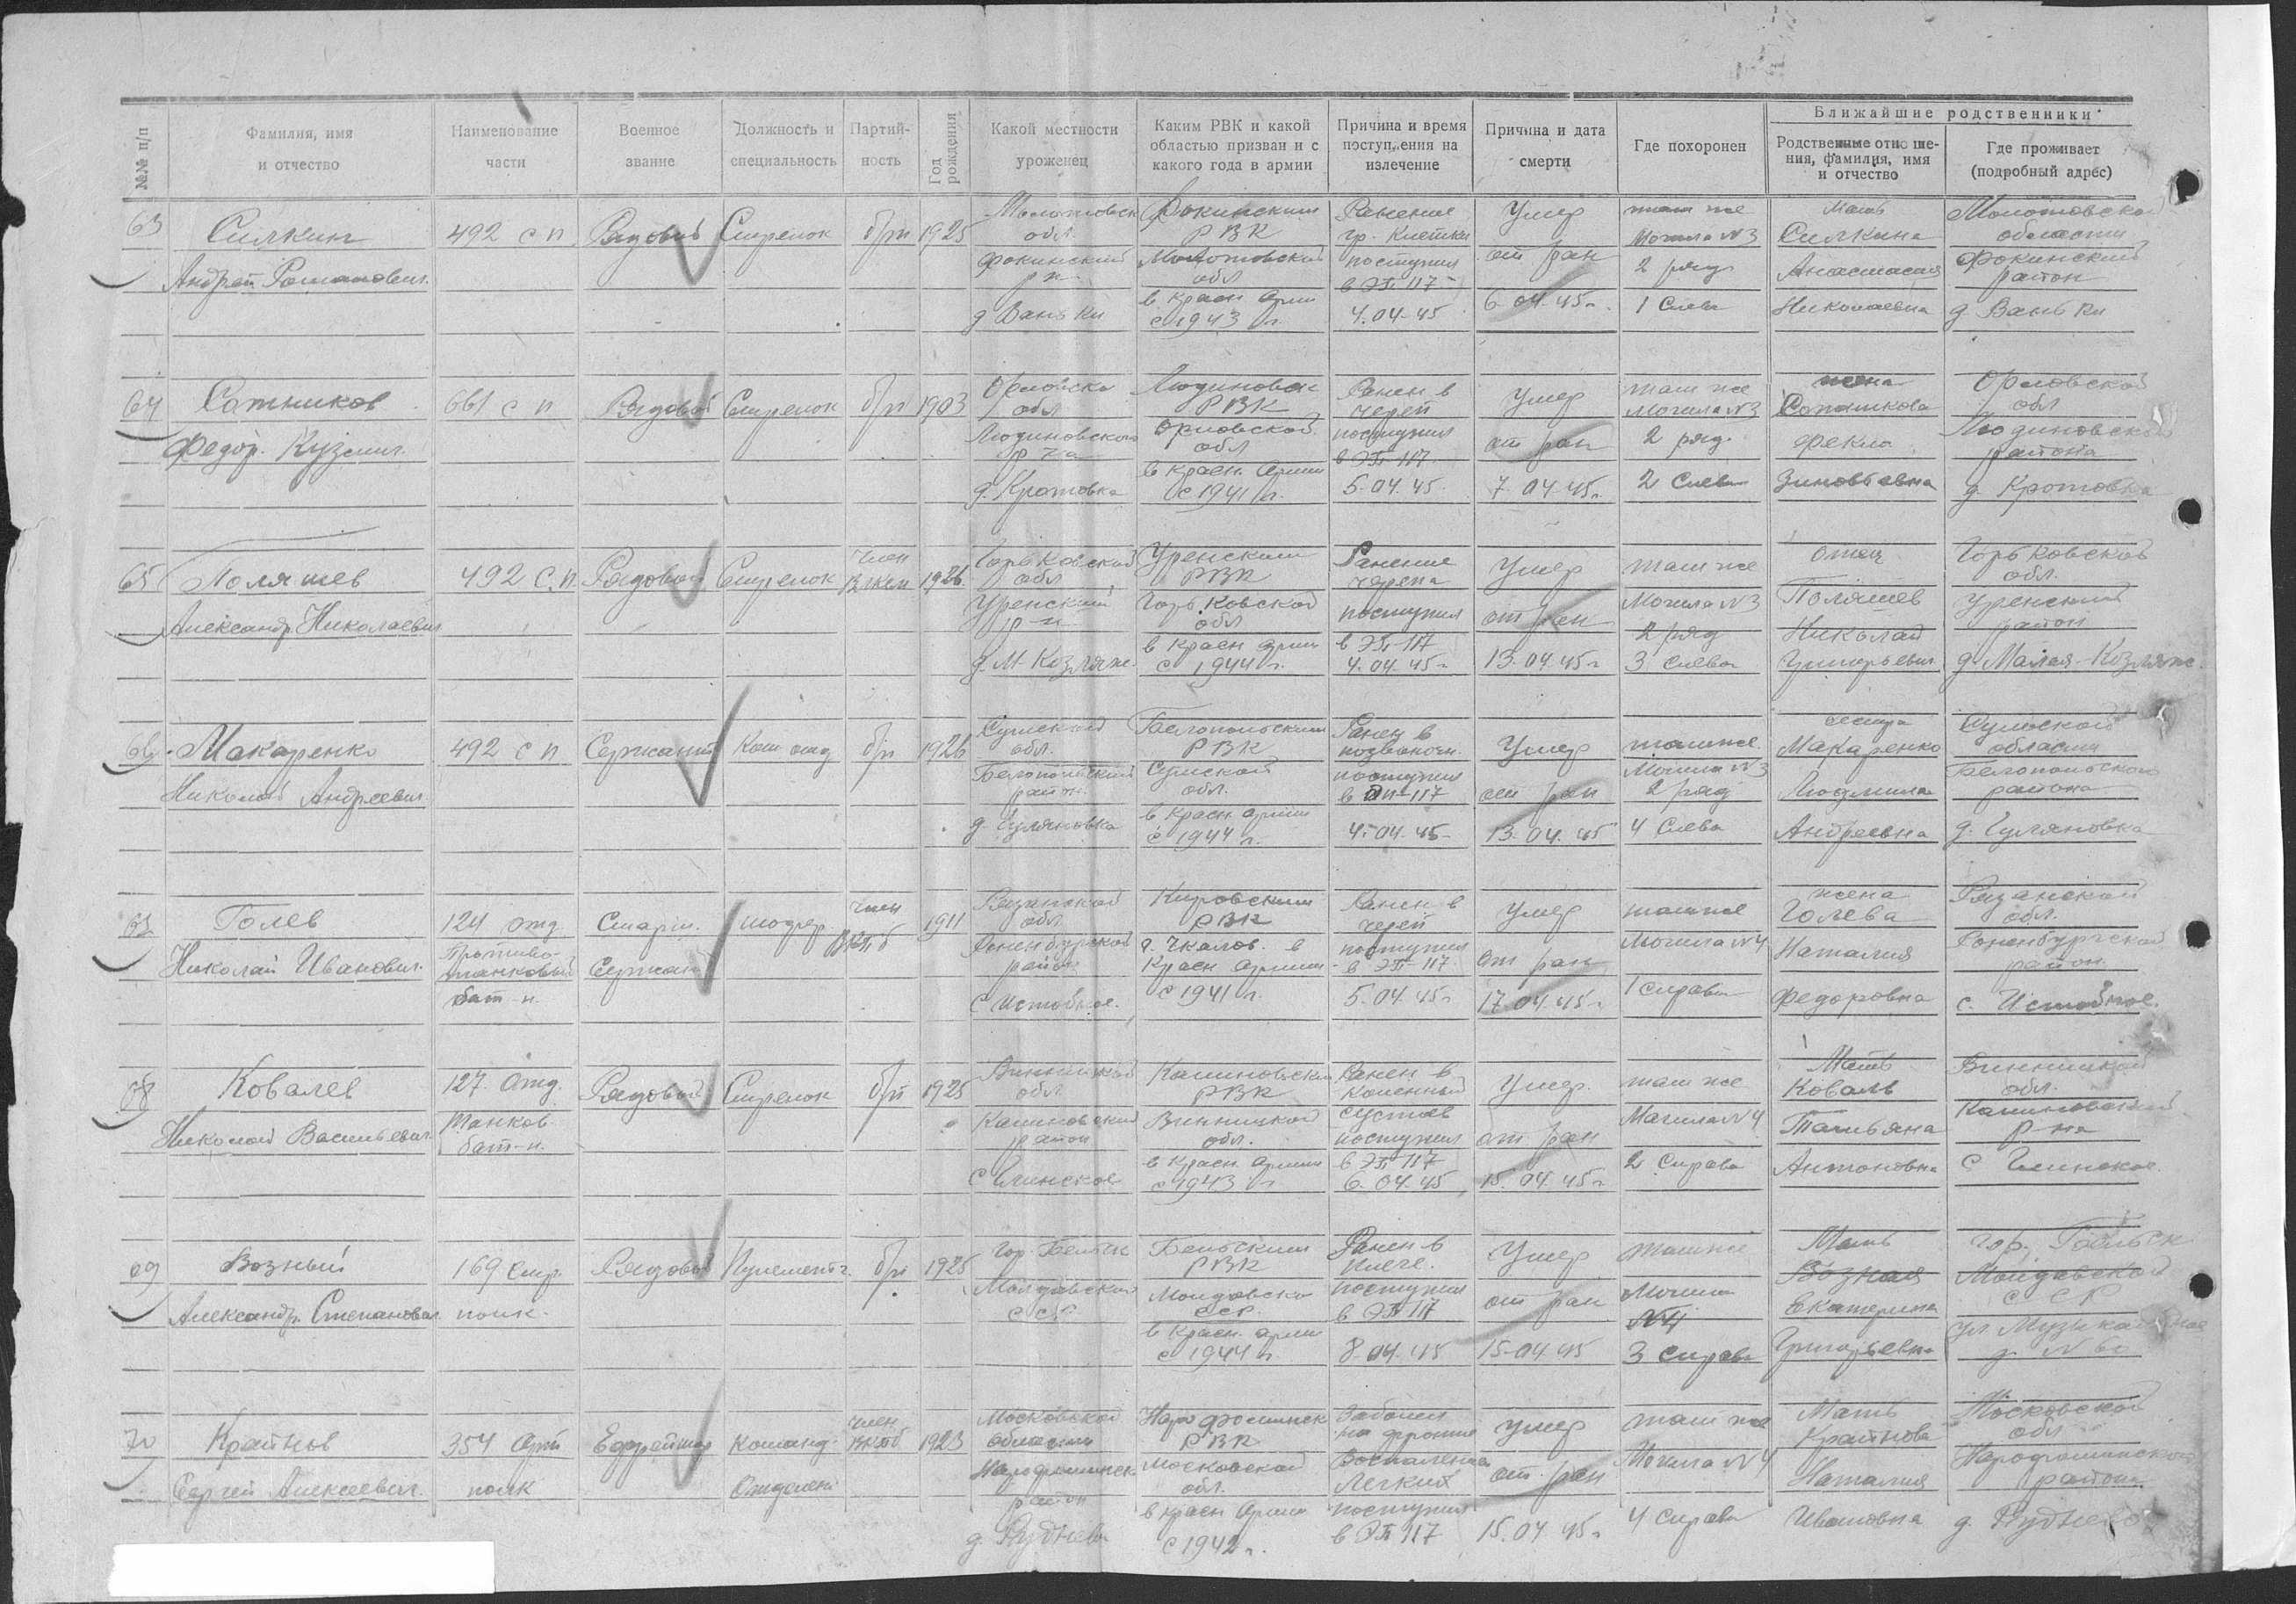 №№ п/п
Фамилия, имя
и отчество
Наименование
части
Военное
звание
Должность и
специальность
Партий-
ность
Год
рождения
Какой местности
уроженец
Каким РВК и какой
областью призван и с
какого года в армии
Причина и время
поступления на
излечение
Причина и дата
смерти
Где похоронен
Ближайшие родственники
Родственные отноше-
ния, фамилия, имя
и отчество
Где проживает
(подробный адрес)
63
Силкин
Андрей Романович
492 с п
Рядовой
Стрелок
б/п
1925
Молотовск
обл.
Фокинский
р н
д Ваньки
Фокинским
РВК
Молотовской
обл
в Красн Арми
с 1943 г.
Ранение
гр. Клетки
поступил
в ЭП-117
4.04.45
Умер
от ран
6.04.45г.
там же
Могила N3
2 ряд
1 Слева
Мать
Силкина
Анастасия
Николаевна
Молотовской
области
Фокинский
район
д. Ваньки
64
Сотников
Федор. Кузмич.
661 с п
Рядовой
Стрелок
б/п
1903
Орловско
обл
Людиновского
р на
д. Кротовка
Людиновск
РВК
Орловской
обл
в Красн. Арми
с 1941 г.
Ранен в
череп
поступил
в ЭП-117
5.04.45
Умер
от ран
7.04.45г.
там же
Могила N3
2 ряд.
2 Слева
жена
Сотникова
Фекла
Зиновьевна
Орловской
обл
Людиновской
района
д. Кротовка
65
Поляшев
Александр Николаевич
492 С.п
Рядовой
Стрелок
Член
ВЛКСМ
1926
Горьковской
обл
Уренский
р-н
д. М-Козляне
Уренским
РВК
Горьковской
обл
в Красн арми
с 1944 г.
Ранение
черепа
поступил
в ЭП-117
4.04.45г
Умер
от ран
13.04.45г
там же
Могила N3
2 ряд
3 Слева
Отец
Поляшев
Николай
Григорьевич
Горьковской
обл.
Уренский
район
д. Малая-Козляне.
66.
Макаренко
Николай Андреевич
492 с п
Сержант
Ком отд
б/п
1926
Сумской
обл.
Белопольский
район
д. Гуляновка
Белопольским
РВК
Сумской
обл.
в Красн. арми
с 1944 г.
Ранен в
позвоночн.
поступил
в ЭП-117
4.04.45
Умер
от ран
13.04.45
там же.
Могила N3
2 ряд
4 Слева
сестра
Макаренко
Людмила
Андреевна
Сумской
области
Белопольского
района
д. Гуляновка
67
Голев
Николай Иванович.
124 отд
Противо-
танковый
бат-н.
Старш.
Сержант
шофер
Член
ВКПб
1911
Рязанской
обл.
Раненбургской
район
с Истобное.
Кировским
РВК
г. Чкалов. в
Красн Армии
с 1941 г.
Ранен в
череп
поступил
в ЭП-117
5.04.45г
Умер
от ран
17.04.45г
там же
Могила N4
1 Справа
жена
Голева
Наталия
Федоровна
Рязанской
обл.
Раненбургской
район
с. Истобное.
68
Ковалев
Николай Васильевич
127 Отд.
Танков.
бат-н.
Рядовой
Стрелок
б/п
1925
Винницкой
обл
Калиновский
район
с Глинское
Калиновским
РВК
Винницкой
обл.
в Красн. Армии
с 1943 г
Ранен в
коленный
сустав
поступил
в ЭП 117
6.04.45
Умер.
от ран
15.04.45г
там же
Могила N4
2 Справа
Мать
Коваль
Татьяна
Антоновна
Винницкой
обл.
Калиновский
р-на
с Глинское.
69
Возный
Александр. Степанович
169 Стр.
полк.
Рядовой
Пулеметч.
б/п
1925
Гор. Бельск
Молдавской
ССР
Бельским
РВК
Молдавско
ССР.
в Красн. арми
с 1944 г.
Ранен в
плече.
поступил
в ЭП 117
8.04.45
Умер
от ран
15.04.45
там же
Могила
N4
3 Справа
Мать
Возная
Екатерина
Григорьевна
Гор. Бельск
Молдавской
ССР
ул Музыкальная
70
Крайнов
Сергей Алексеевич.
354 Арт
полк
Ефрейтор
Команд.
Отделен
Член
ВКПб
1923
Московской
области
Нарофоминск
район
д. Руднева
Наро Фоминск
РВК
Московской
обл.
в Красн Арми
с 1942 г.
Заболел
на фронте
Воспаление
Легких
поступил
в ЭП 117
Умер
от. ран
15.04.45г
там же
Могила N4
4 Справа
Мать
Крайнова
Наталия
Ивановна
Московской
обл
Нарофоминского
района
д. Руднево